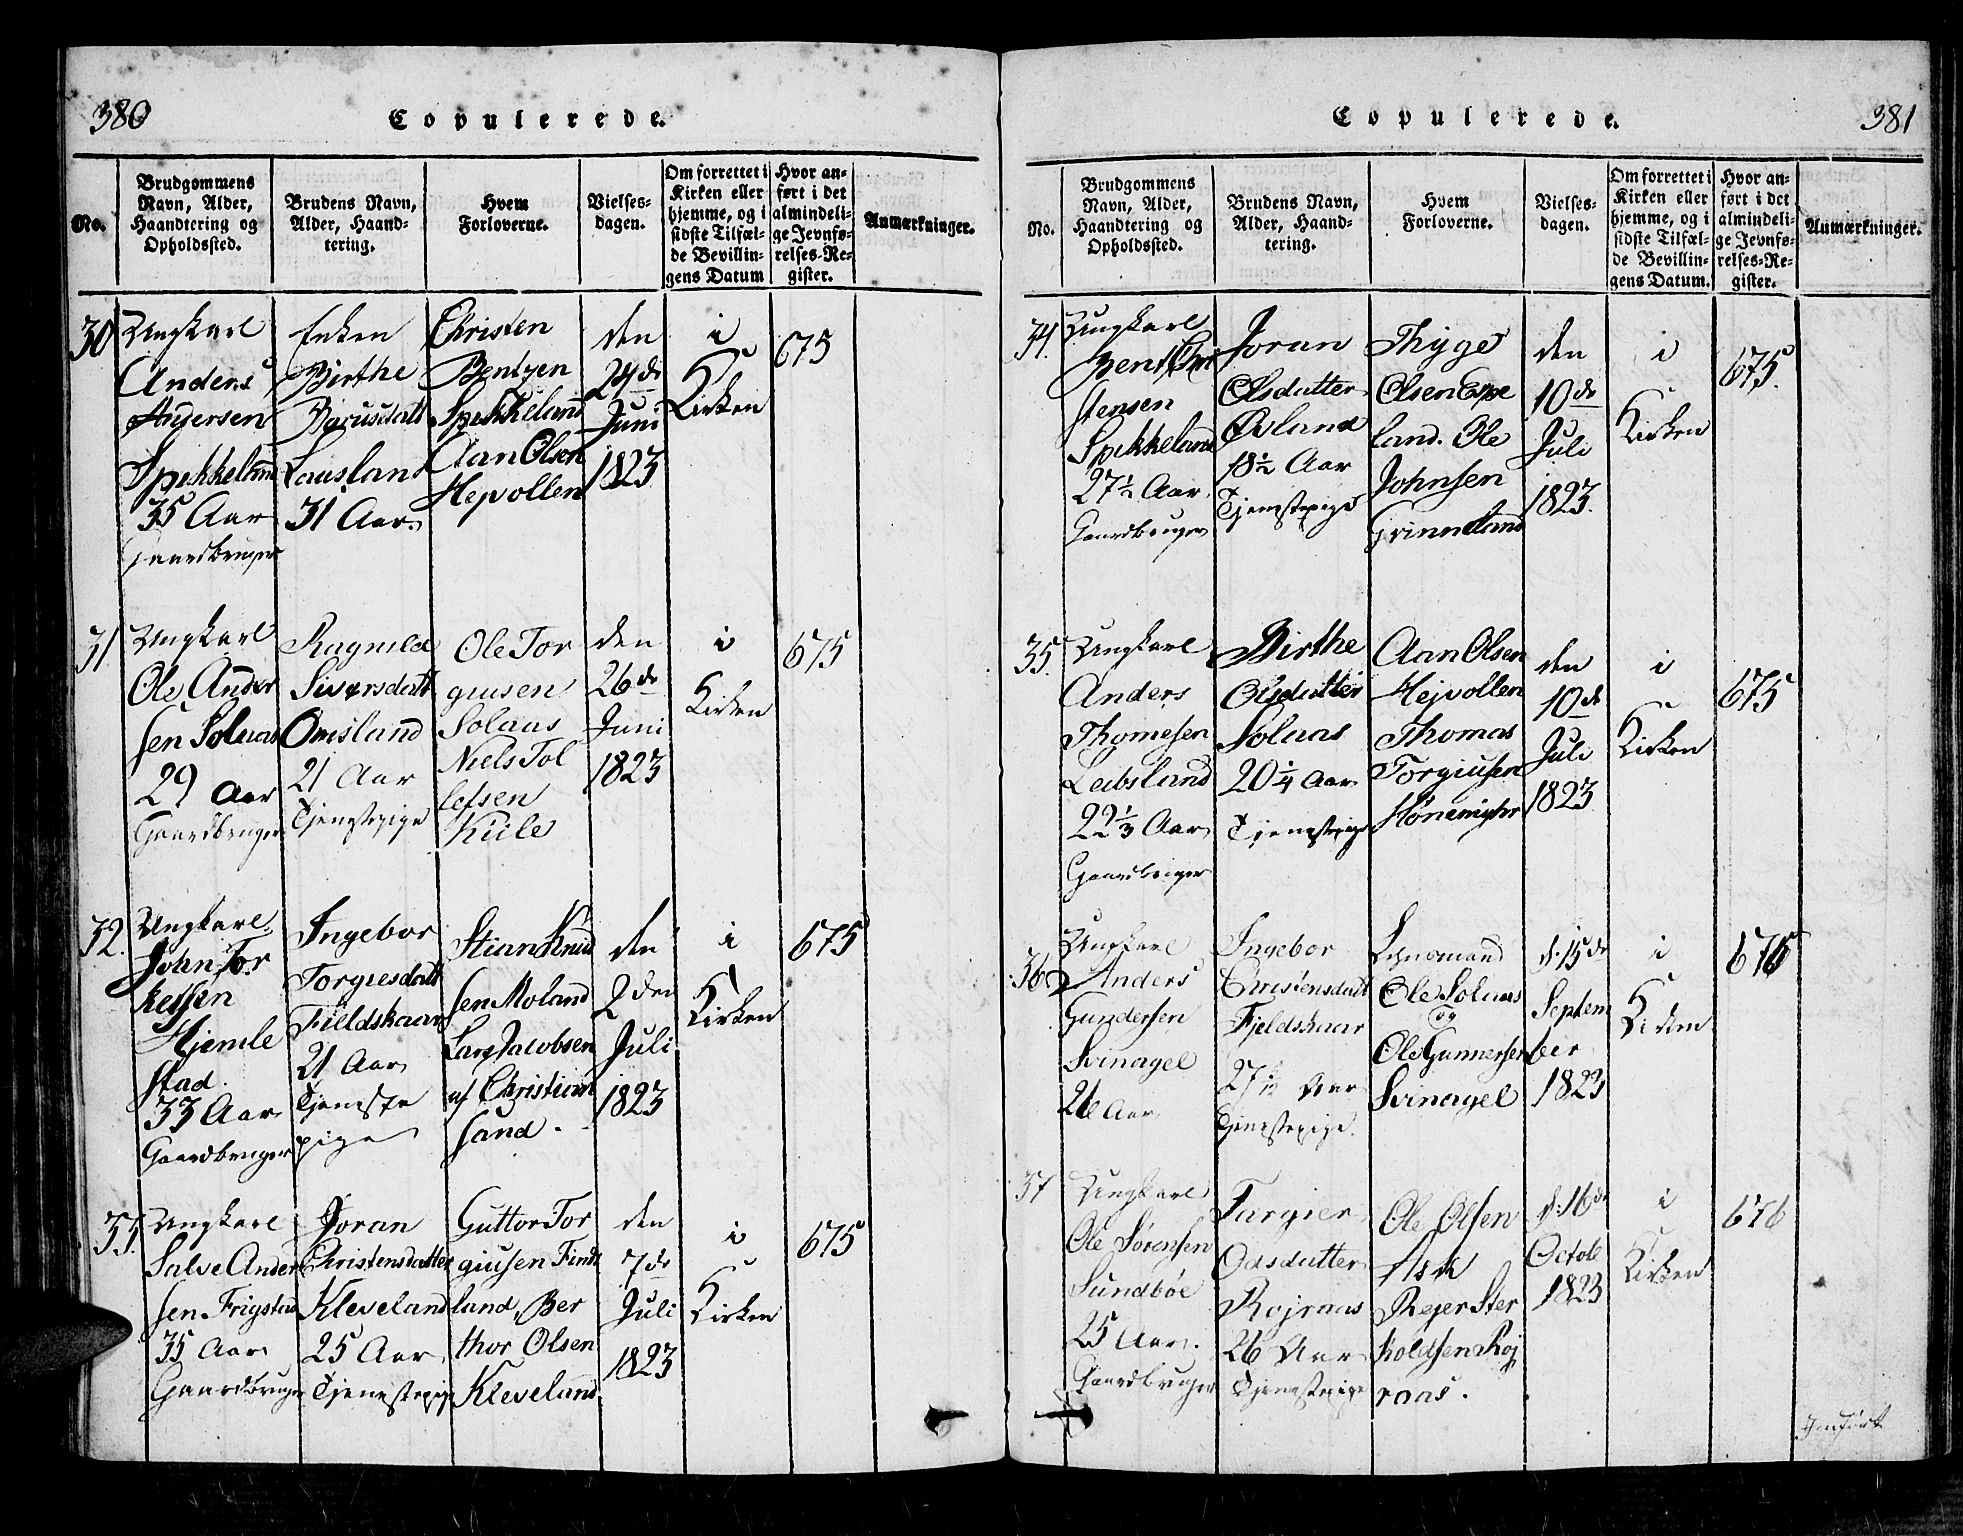 380
Copulerede.
No.
Brudgommens
Navn, Alder,
Haandtering og
Opholdssted.
Brudens Navn,
Alder, Haand-
tering.
Hvem
Forloverne.
Vielses-
dagen.
Om forrettet i
Kirken eller
hjemme, og i
sidste Tilfæl-
de Bevillin-
gens Datum
Hvor an-
ført i det
almindeli-
ge Jevnfø-
relses-Re-
gister.
Anmærkninger.
30
Ungkarl
Anders
Andersen
Spekkeland
35 Aar
Gaardbruger
Enken
Birthe
Lausland
31 Aar
Christen
Bentzen
Spekkeland
Aan Olsen
Hejvollen
den
24de
Juni
1823
i
Kirken
675
31
Ungkarl
Ole Ander
sen Solaas
29 Aar
Gaardbruger
Ragnild
Siversdatt
Omsland
21 Aar
Tjenestepige
Ole Tor
giusen
Solaas
Niels Tol
lefsen
Kiile
den
26de
Juni
1823
i
Kirken
675
32.
Ungkarl
John Tor
kelsen
Hjemle
stad.
33 Aar
Gaardbruger
Ingebor
Torgiesdatt
Fieldskaar
21 Aar
Tjeneste
pige
Stian Knud
sen Moland
Lars Jacobsen
af Christian
sand.
den
2den
Juli
1823
i
Kirken
675
33.
Ungkarl
Salve Ander
sen Frigstad
35 Aar
Gaardbruger
Joran
Christensdatter
Kleveland
25 Aar
Tjenestepige
Guttor Tor
giusen Finds
land, Ber
thor Olsen
Kleveland.
den
7de
Juli
1823
i
Kirken
675
Copulerede.
381
No.
Brudgommens
Navn, Alder,
Haandtering og
Opholdssted.
Brudens Navn,
Alder, Haand-
tering.
Hvem
Forloverne.
Vielses-
dagen.
Om forrettet i
Kirken eller
hjemme, og i
sidste Tilfæl-
de Bevillin-
gens Datum.
Hvor an-
ført i det
almindeli-
ge Jevnfø-
relses-Re-
gister.
Anmærkninger.
34.
Ungkarl
Bent Chri
stensen
Spekkeland
27½ Aar
Gaardbruger
Joran
Olsdatter
Øvland
18½ Aar
Tjenestepige
Thyge
Olsen Espe
land. Ole
Johnsen
Grinneland
den
10de
Juli
1823.
i
Kirken
675.
35.
Ungkarl
Anders
Thomesen
Leibsland
22⅓ Aar
Gaardbruger
Birthe
Olsdatter
Solaas
20¼ Aar
Tjenestepige
Aan Olsen
Hejvollen
Thomas
Torgiusen
den
10de
Juli
1823
i
Kirken
675
36
Ungkarl
Anders
Gundersen
Svinagel
26 Aar
Ingebor
Christensdatt
Fjeldskaar
Aar
Tjenestepige.
Lensmand
Ole Solaas
og
Ole Gunnersen
Svinagel
d. 15de
Septem
ber
1823
i
Kirken
676
37
Ungkarl
Ole Sørensen
Sundbøe
25 Aar.
Gaardbruger
Targier
Osdatter
Rojraas
26 Aar
Tjenestepige
Ole Olsen
Ask
Rejer Ster
koldsen Roj
raas.
d. 16de
Octob
1823
i
Kirken
676
Indført